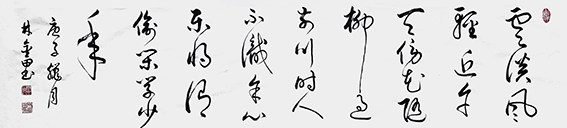 雲淡風
輕近午
天傍花隨
柳過
前川時人
不識余心
樂將謂
偷閒學少
年
庚子臘月
林田書